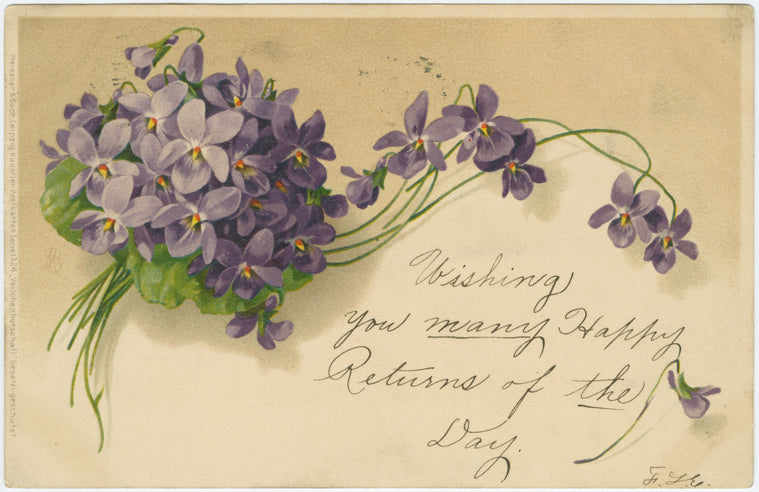 Wishing
you many Happy
Returns of the
Day.
Meissner & Buch, Leipzig Künstler-Postkarten Serie 1324 "Veilchenbotschaft" Gesetzl. geschützt